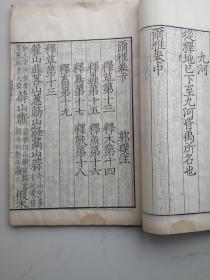 九河
從釋地已下至九河皆禹所名也
爾雅卷中
爾雅卷下
郭璞注
釋草第十三 釋木第十四
釋蟲第十五 釋魚第十六
釋鳥第十七 釋獸第十八
釋畜第十九
釋草第十三
藿山韭茖山葱葝山䪥蒚山蒜
薜山蘄
椴木